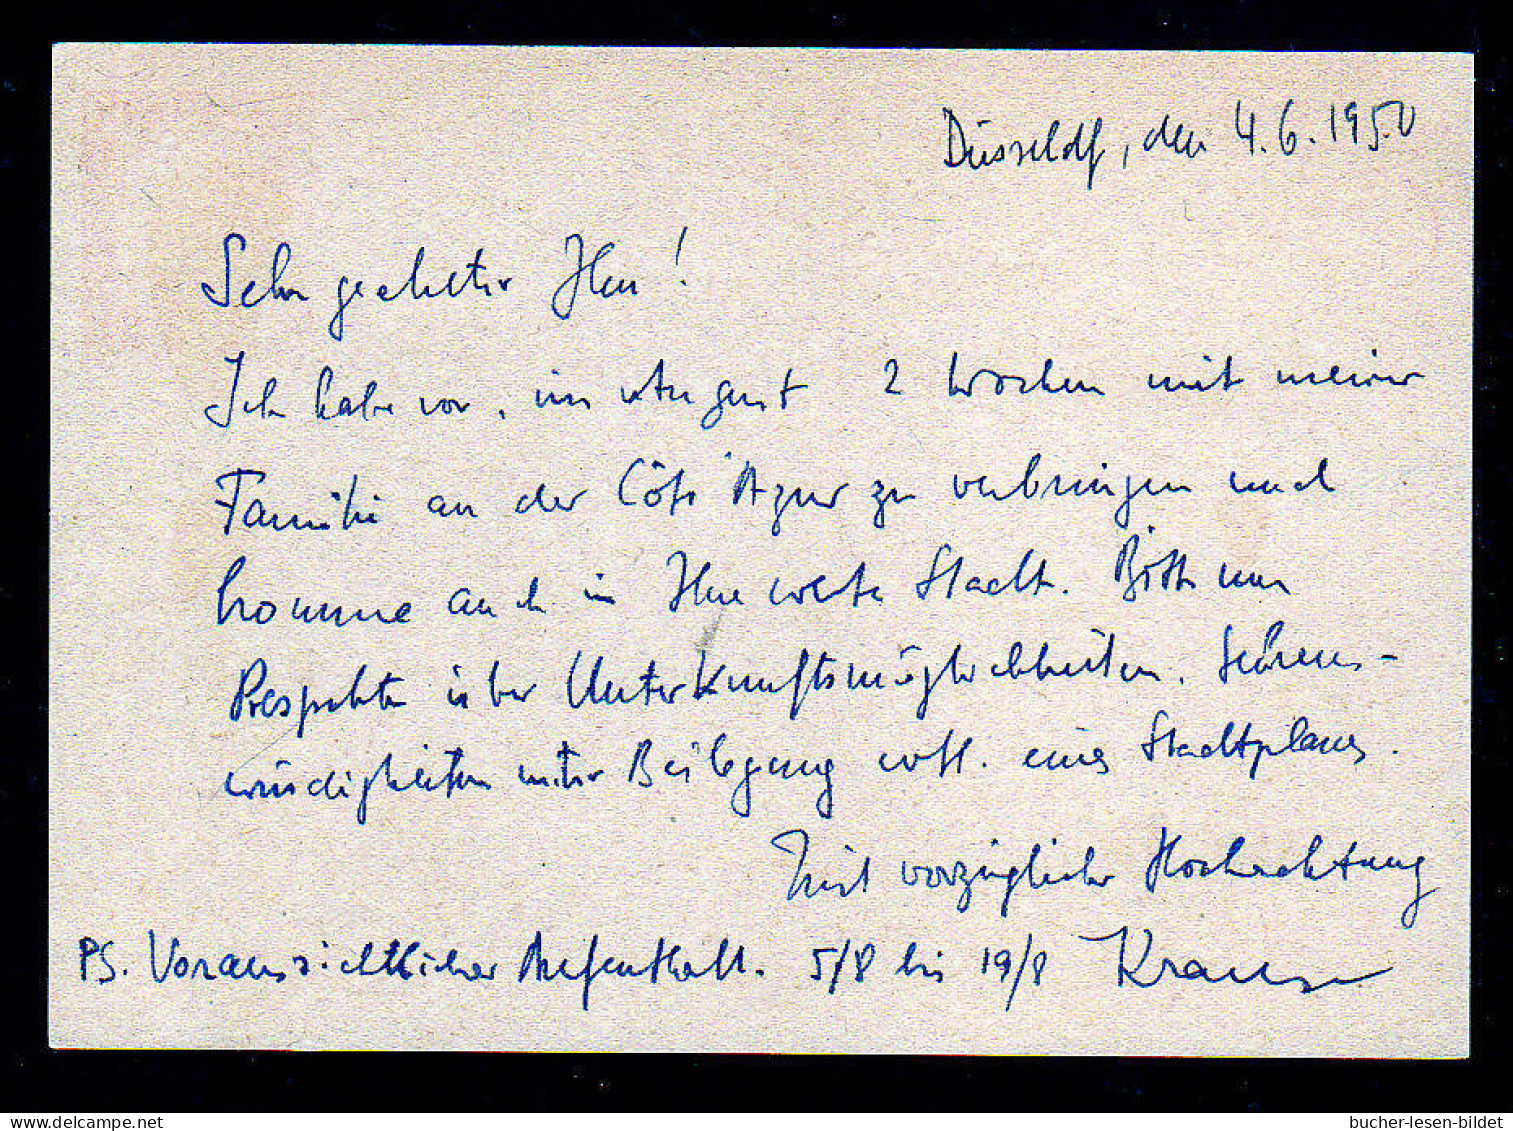 Düsseldf, den 4.6.1950
Sehr geehrter Herr!
Ich habe vor, im August 2 Wochen mit meiner
Familie an der Côte d'Azur zu verbringen und
komme auch in Ihre werte Stadt. Bitte um
Prospekte über Unterkunftsmöglichkeiten, Sehens-
würdigkeiten unter Beilegung evtl. eines Stadtplanes.
Mit vorzüglicher Hochachtung
PS. Voraussichtlicher Aufenthalt. 5/8 bis 19/8 Krause
bucher-lesen-bildet